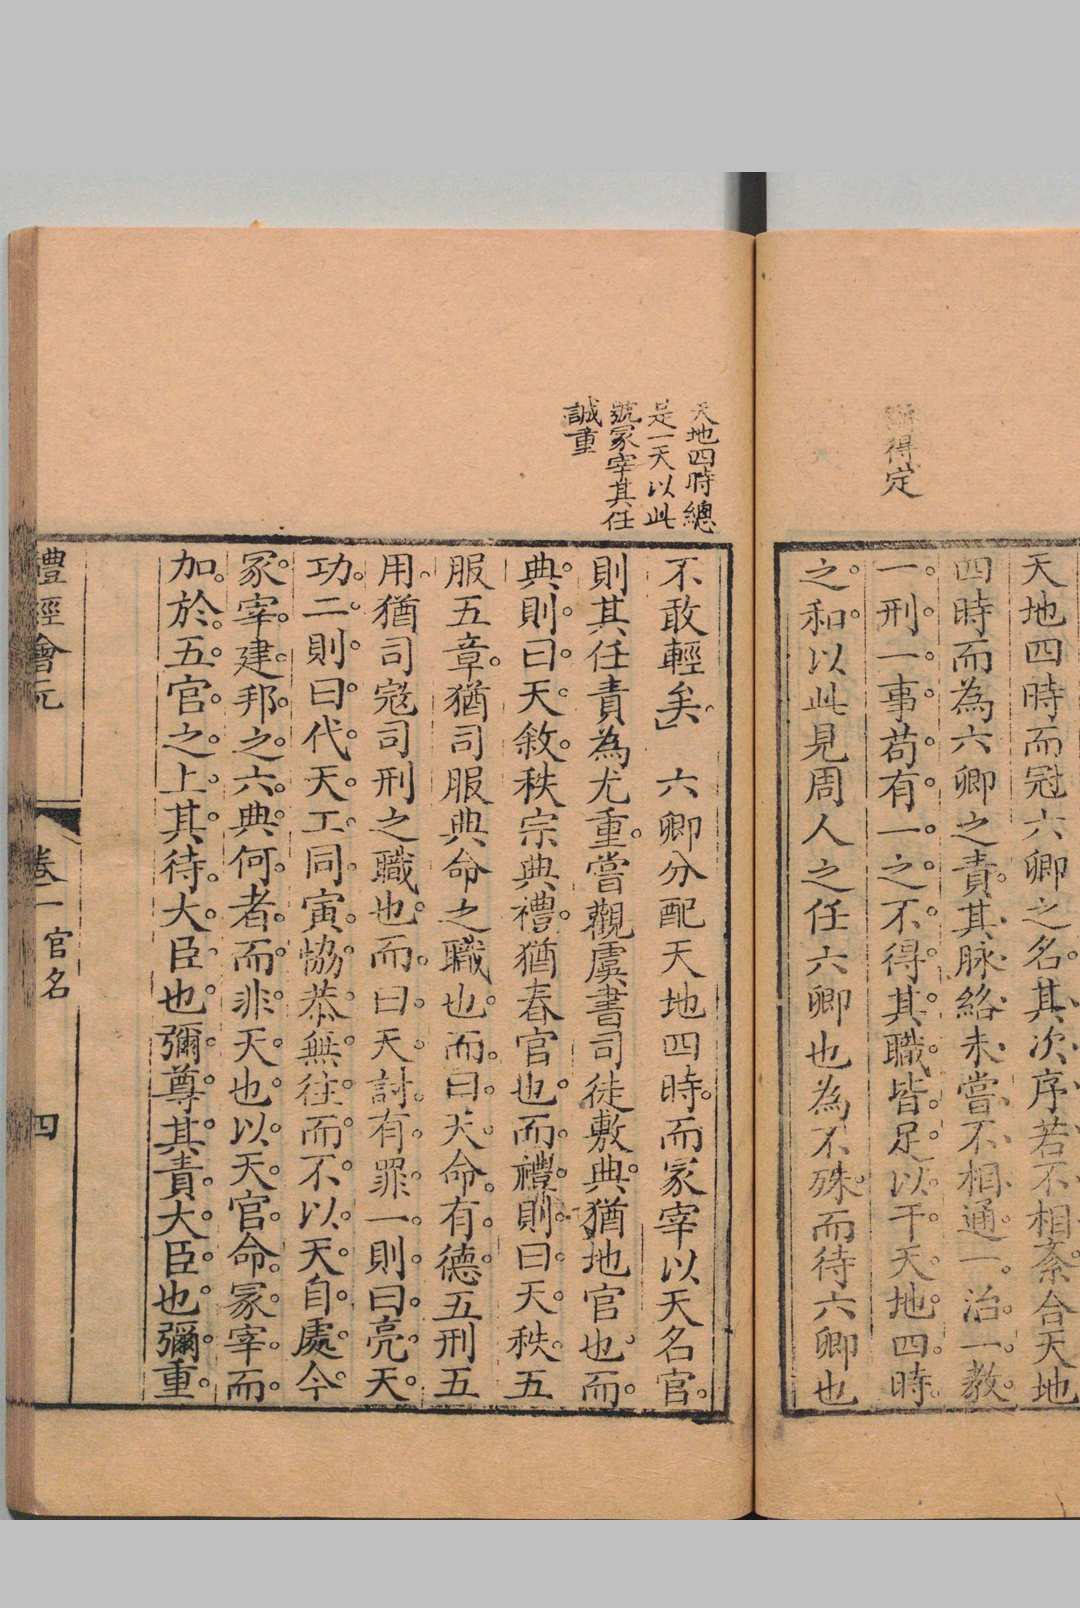 得定
天地四時而冠六卿之名其次序若不相紊合天地
四時而為六卿之責其脉絡未嘗不相通一治一教
一刑一事苟有一之不得其職皆足以干天地四時
之和以此見周人之任六卿也為不殊而待六卿也
天地四時總
是一天以此
號冢宰其任
誠重
不敢輕矣」六卿分配天地四時而冢宰以天名官
則其任責為尤重嘗觀虞書司徒敷典猶地官也而
典則曰天敘秩宗典禮猶春官也而禮則曰天秩五
服五章猶司服典命之職也而曰天命有德五刑五
用猶司寇司刑之職也而曰天討有罪一則曰亮天
功二則曰代天工同寅恊恭無往而不以天自處今
冢宰建邦之六典何者而非天也以天官命冢宰而
加於五官之上其待大臣也彌尊其責大臣也彌重
禮經會元
卷一 官名
四